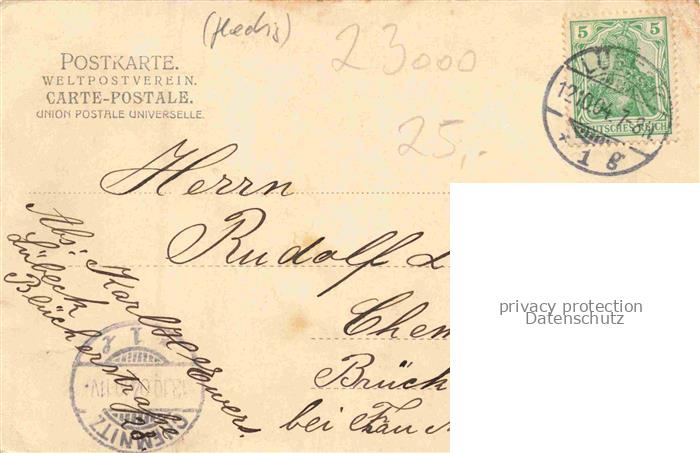 (Hedis)
23000
25,-
POSTKARTE.
WELTPOSTVEREIN.
CARTE-POSTALE.
UNION POSTALE UNIVERSELLE.
5 5
DEUTSCHES REICH
LÜB
12.10.04. 7-8 N
* 1 g
Herrn
Rudolf L
Chem
Brück
bei Frau
Abs: Karl H. Ewers.
Lübeck
Blücherstraße 28.
CHEMNITZ
1
privacy protection
Datenschutz